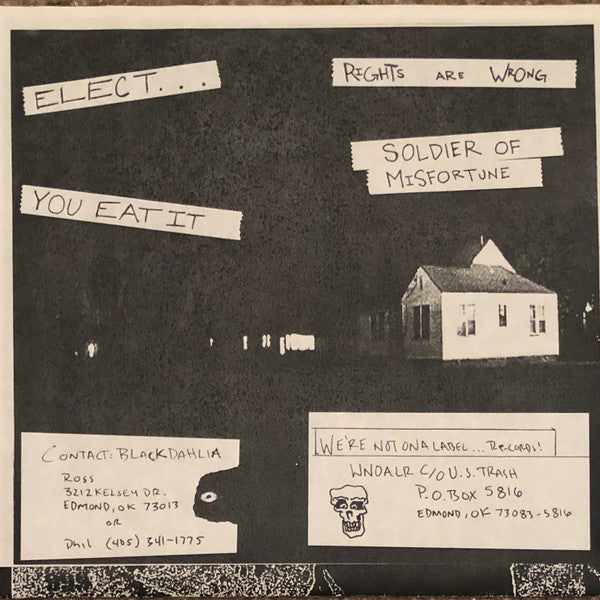 ELECT...
RIGHTS ARE WRONG
SOLDIER OF
MISFORTUNE
YOU EAT IT
CONTACT: BLACK DAHLIA
ROSS
3212 KELSEY DR.
EDMOND, OK 73013
OR
Phil (405) 341-1775
WE'RE NOT ON A LABEL... RECORDS!
WNOALR C/O U.S. TRASH
P.O. BOX 5816
EDMOND, OK 73083-5816